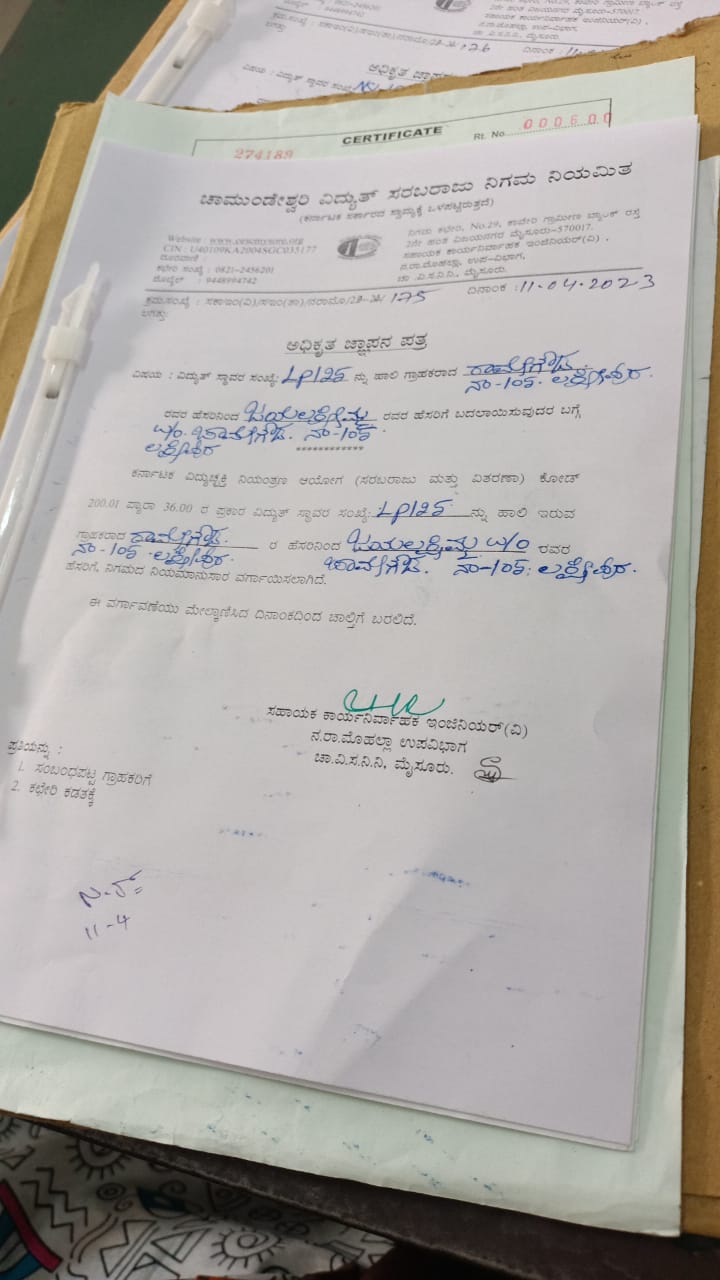 ನಂ.29, ಕಾವೇರಿ ಗ್ರಾಮೀಣ ಬ್ಯಾಂಕ್ ರಸ್ತೆ
ಮೈಸೂರು-570017.
ಸಹಾಯಕ ಕಾರ್ಯನಿರ್ವಾಹಕ ಇಂಜಿನಿಯರ್(ವಿ) ,
ನ.ರಾ.ಮೊಹಲ್ಲಾ, ಉಪ-ವಿಭಾಗ,
ಚಾ.ವಿ.ಸ.ನಿ.ನಿ., ಮೈಸೂರು.
9448994742
126 ದಿನಾಂಕ :11
ವಿಷಯ : ವಿದ್ಯುತ್ ಸ್ಥಾವರ ಸಂಖ್ಯೆ
CERTIFICATE
274189
Rt. No. 000600
ಚಾಮುಂಡೇಶ್ವರಿ ವಿದ್ಯುತ್ ಸರಬರಾಜು ನಿಗಮ ನಿಯಮಿತ
(ಕರ್ನಾಟಕ ಸರ್ಕಾರದ ಸ್ವಾಮ್ಯಕ್ಕೆ ಒಳಪಟ್ಟಿರುತ್ತದೆ)
Website : www.cescmysore.org
CIN : U40109KA2004SGC035177
ದೂರವಾಣಿ :
ಕಛೇರಿ ಸಂಖ್ಯೆ : 0821-2456201
ಮೊಬೈಲ್ : 9448994742
ನಿಗಮ ಕಛೇರಿ, ನಂ.29, ಕಾವೇರಿ ಗ್ರಾಮೀಣ ಬ್ಯಾಂಕ್ ರಸ್ತೆ
2ನೇ ಹಂತ ವಿಜಯನಗರ ಮೈಸೂರು-570017.
ಸಹಾಯಕ ಕಾರ್ಯನಿರ್ವಾಹಕ ಇಂಜಿನಿಯರ್(ವಿ) ,
ನ.ರಾ.ಮೊಹಲ್ಲಾ, ಉಪ-ವಿಭಾಗ,
ಚಾ .ವಿ.ಸ.ನಿ.ನಿ., ಮೈಸೂರು.
ಕ್ರಮ.ಸಂಖ್ಯೆ : ಸಕಾಇಂ(ವಿ)/ಸಇಂ(ತಾ)/ನರಾಮೊ/23-24/ 125 ದಿನಾಂಕ :11.04.2023
ಲಗತ್ತು:
ಅಧಿಕೃತ ಜ್ಞಾಪನ ಪತ್ರ
ವಿಷಯ : ವಿದ್ಯುತ್ ಸ್ಥಾವರ ಸಂಖ್ಯೆ: LP125 ನ್ನು ಹಾಲಿ ಗ್ರಾಹಕರಾದ
ನಂ-105.
ರವರ ಹೆಸರಿನಿಂದ ಜಯಲಕ್ಷ್ಮಮ್ಮ ರವರ ಹೆಸರಿಗೆ ಬದಲಾಯಿಸುವುದರ ಬಗ್ಗೆ
W/o. ನಂ-105
************
ಕರ್ನಾಟಕ ವಿದ್ಯುಚ್ಛಕ್ತಿ ನಿಯಂತ್ರಣ ಆಯೋಗ (ಸರಬರಾಜು ಮತ್ತು ವಿತರಣಾ) ಕೋಡ್
200.01 ಪ್ಯಾರಾ 36.00 ರ ಪ್ರಕಾರ ವಿದ್ಯುತ್ ಸ್ಥಾವರ ಸಂಖ್ಯೆ: LP125 ನ್ನು ಹಾಲಿ ಇರುವ
ಗ್ರಾಹಕರಾದ ರ ಹೆಸರಿನಿಂದ ಜಯಲಕ್ಷ್ಮಮ್ಮ W/o ರವರ
ನಂ-105. ನಂ-105:
ಹೆಸರಿಗೆ, ನಿಗಮದ ನಿಯಮಾನುಸಾರ ವರ್ಗಾಯಿಸಲಾಗಿದೆ.
ಈ ವರ್ಗಾವಣೆಯು ಮೇಲ್ಕಾಣಿಸಿದ ದಿನಾಂಕದಿಂದ ಚಾಲ್ತಿಗೆ ಬರಲಿದೆ.
ಸಹಾಯಕ ಕಾರ್ಯನಿರ್ವಾಹಕ ಇಂಜಿನಿಯರ್(ವಿ)
ನ.ರಾ.ಮೊಹಲ್ಲಾ ಉಪವಿಭಾಗ
ಚಾ.ವಿ.ಸ.ನಿ.ನಿ, ಮೈಸೂರು.
ಪ್ರತಿಯನ್ನು :
1. ಸಂಬಂಧಪಟ್ಟ ಗ್ರಾಹಕರಿಗೆ
2. ಕಛೇರಿ ಕಡತಕ್ಕೆ
11-4